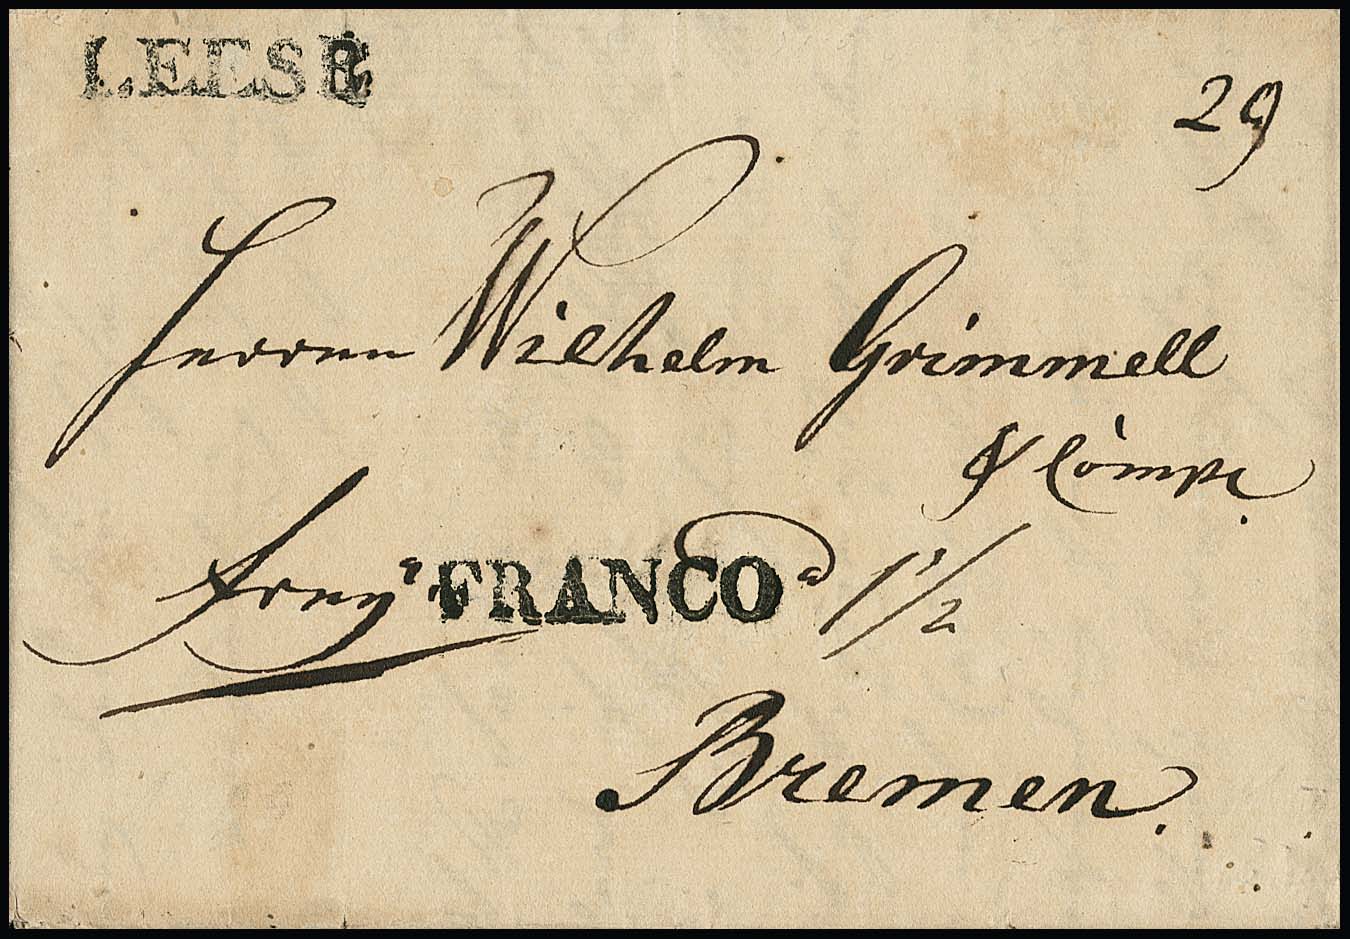 LEESE
29
Herren Wilhelm Grimmell
& Comp.
franco FRANCO 1 1/2
Bremen.